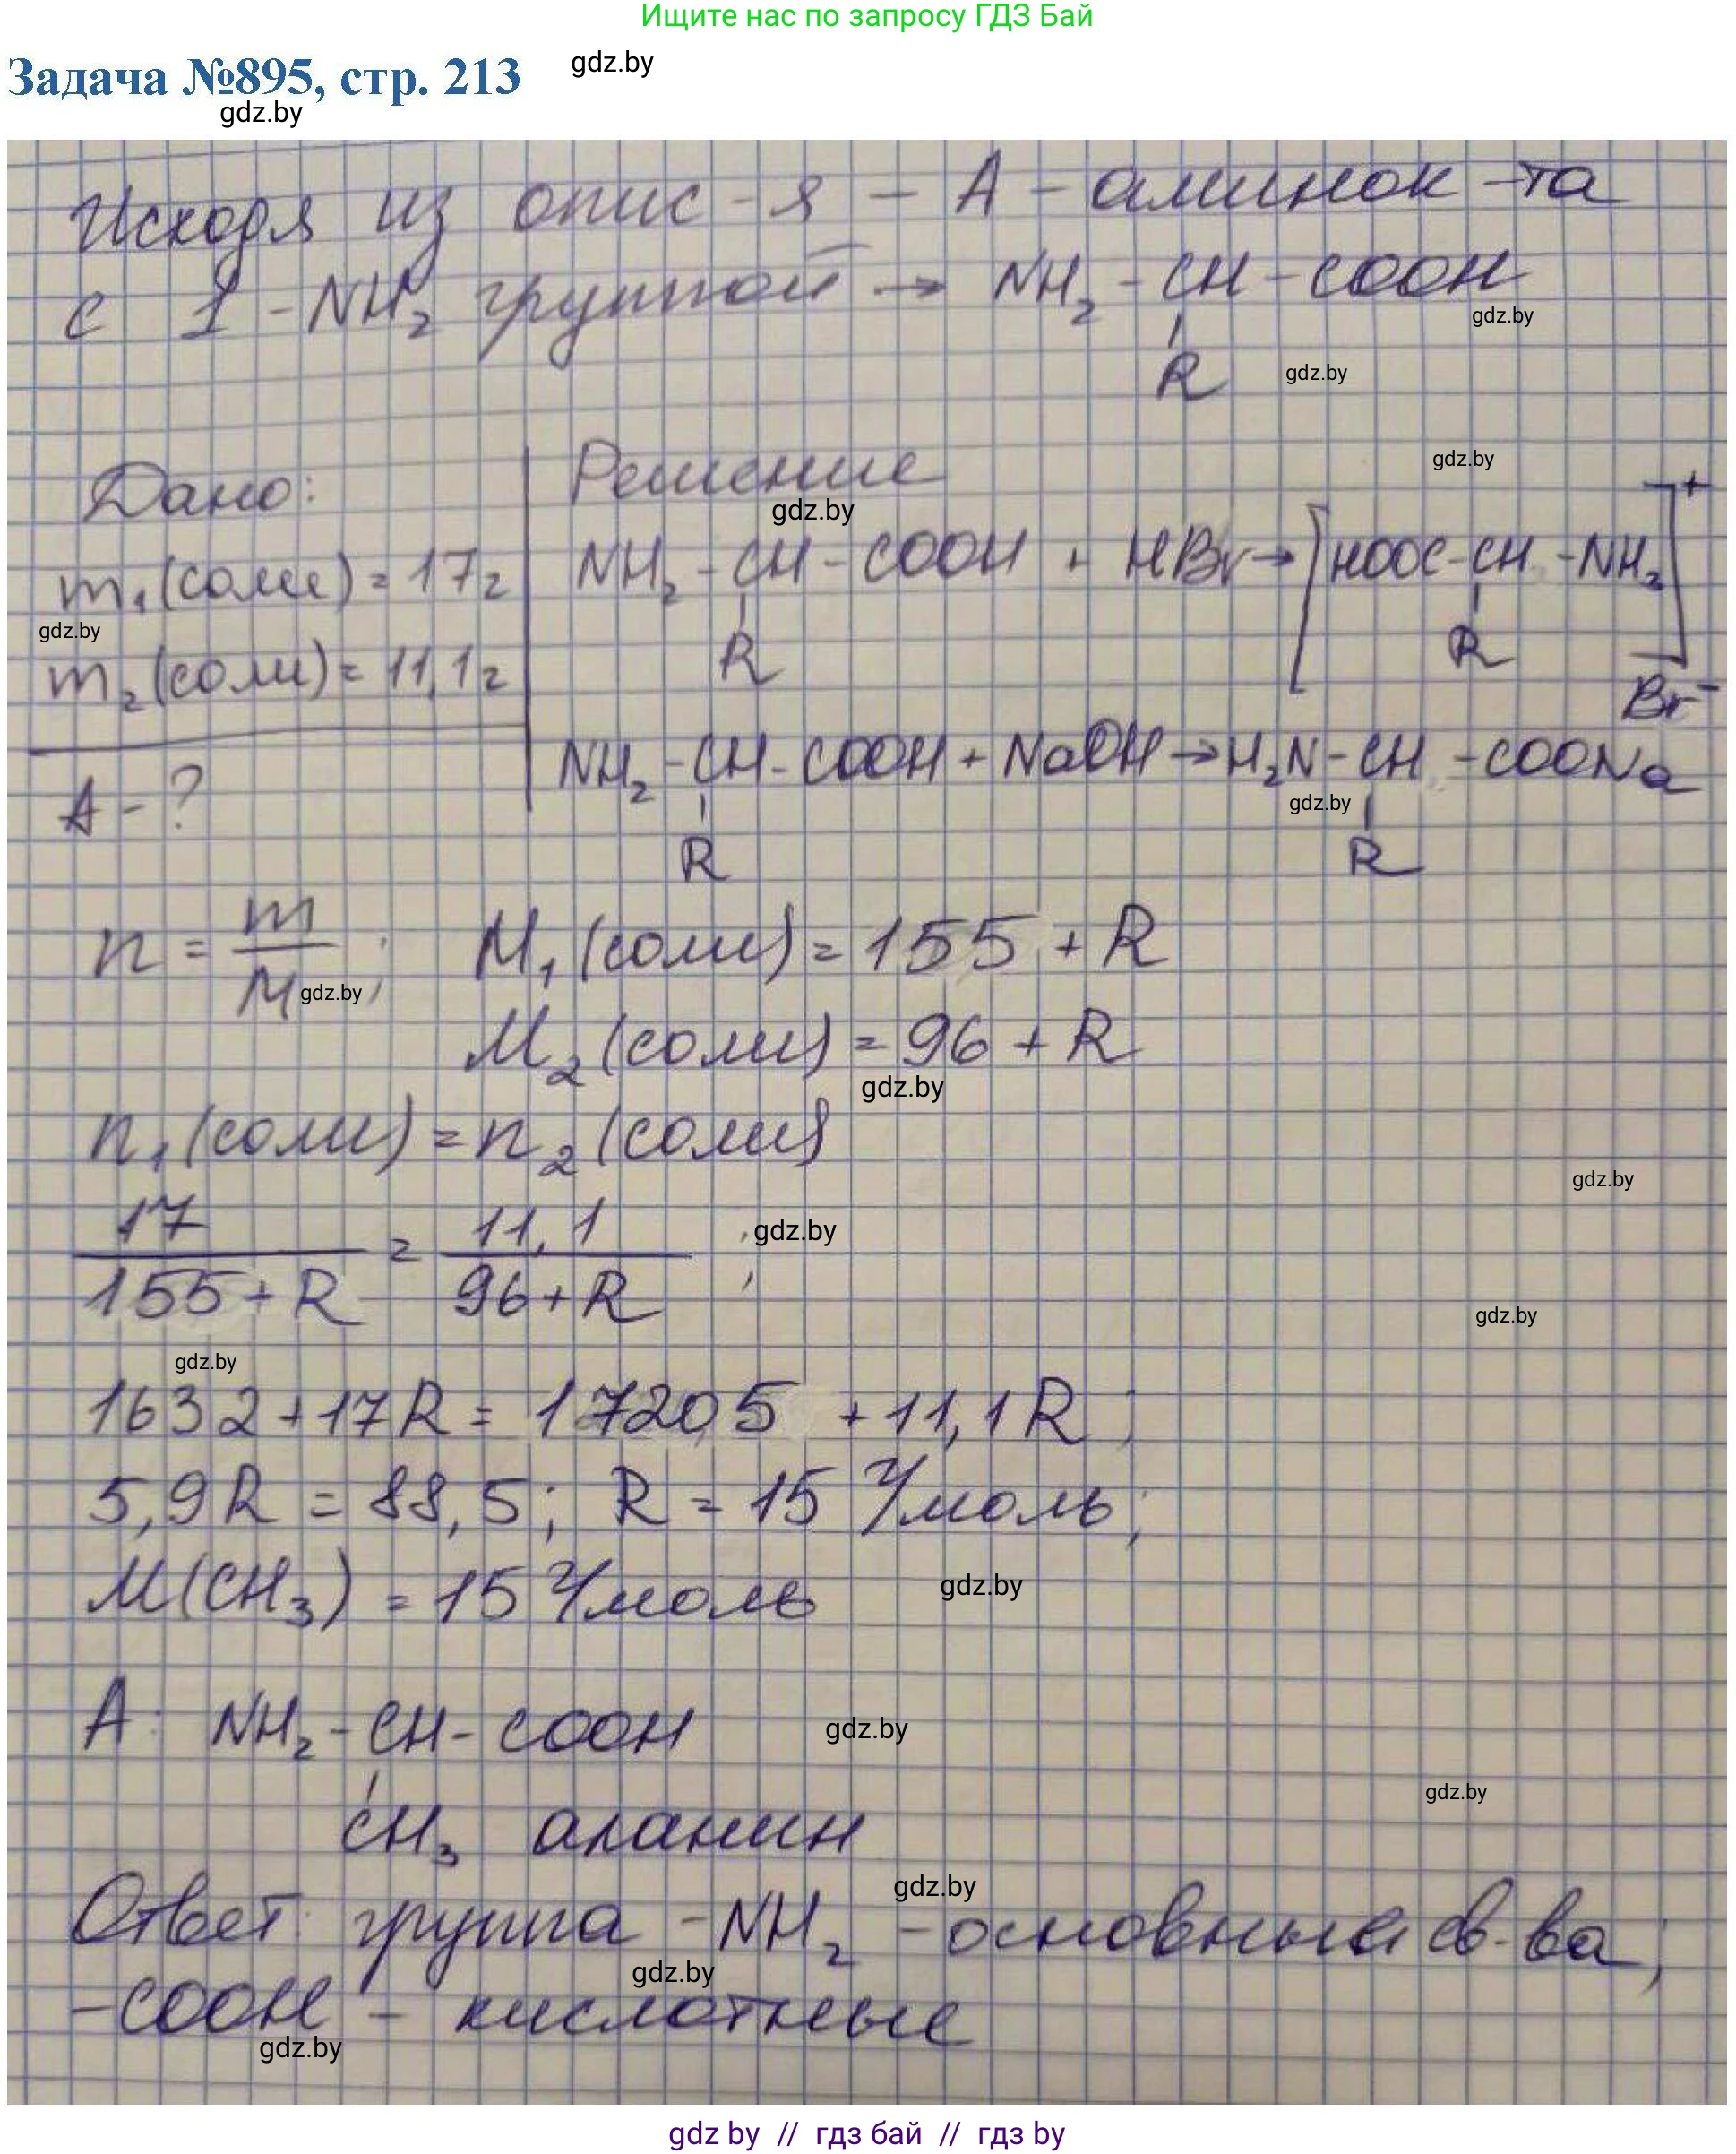 Ищите нас по запросу ГДЗ Бай
Задача №895, стр. 213
gdz.by
gdz.by
Исходя из опис-я - А - аминок-та
с 1 -NH₂ группой → NH₂-CH-COOH
gdz.by
R
gdz.by
Дано:
Решение
gdz.by
gdz.by
m₁(соли) = 17г
NH₂-CH-COOH + HBr → [HOOC-CH-NH₃]⁺
gdz.by
R
R
Br⁻
m₂(соли) = 11,1г
NH₂-CH-COOH + NaOH → H₂N-CH-COONa
gdz.by
R
R
А - ?
n = m/M ; M₁(соли) = 155 + R
gdz.by
M₂(соли) = 96 + R
gdz.by
n₁(соли) = n₂(соли)
gdz.by
17/(155+R) = 11,1/(96+R) ;
gdz.by
gdz.by
gdz.by
1632+17R = 1720,5 + 11,1R ;
5,9R = 88,5; R = 15 г/моль;
M(CH₃) = 15 г/моль
gdz.by
А: NH₂-CH-COOH
gdz.by
gdz.by
CH₃ аланин
gdz.by
Ответ: группа -NH₂ -основные св-ва;
gdz.by
-COOH - кислотные
gdz.by
gdz by // гдз бай // гдз by